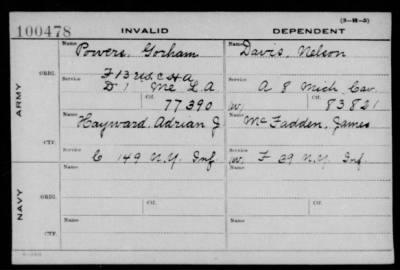 (3-M-5)
100478 INVALID DEPENDENT
Name Powers, Gorham Name Davis, Nelson
ARMY ORIG. Service F 13 U.S.C.H.A. Service
D 1 Me L.A. A 8 Mich Cav.
Ctf. 77390 W, Ctf. 83821
Name Hayward, Adrian J Name McFadden, James
CTF. Service C 149 N.Y. Inf. Service W, F 39 N.Y. Inf.
NAVY ORIG. Name Name
Service Ctf. Service Ctf.
CTF. Name Name